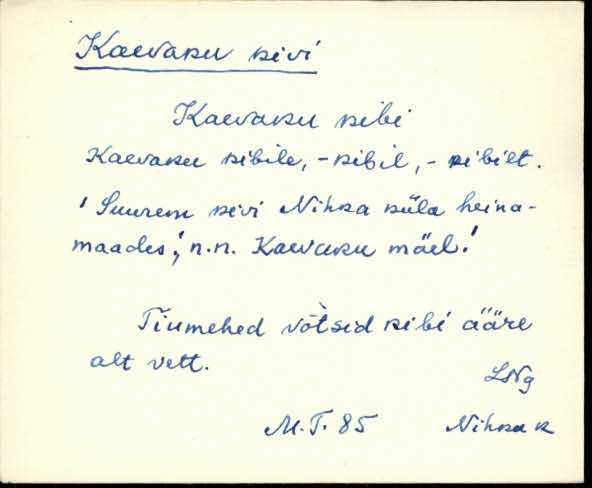 Kaevaku kivi
Kaevaku kibi
Kaevaku kibile, -kibil, -kibilt.
'Suurem kivi Nihka küla heina-
maades', n.n. Kaevaku mäel.'
Tiumehed võtsid kibi ääre
alt vett.
LNg
M.T. 85 Nihka k